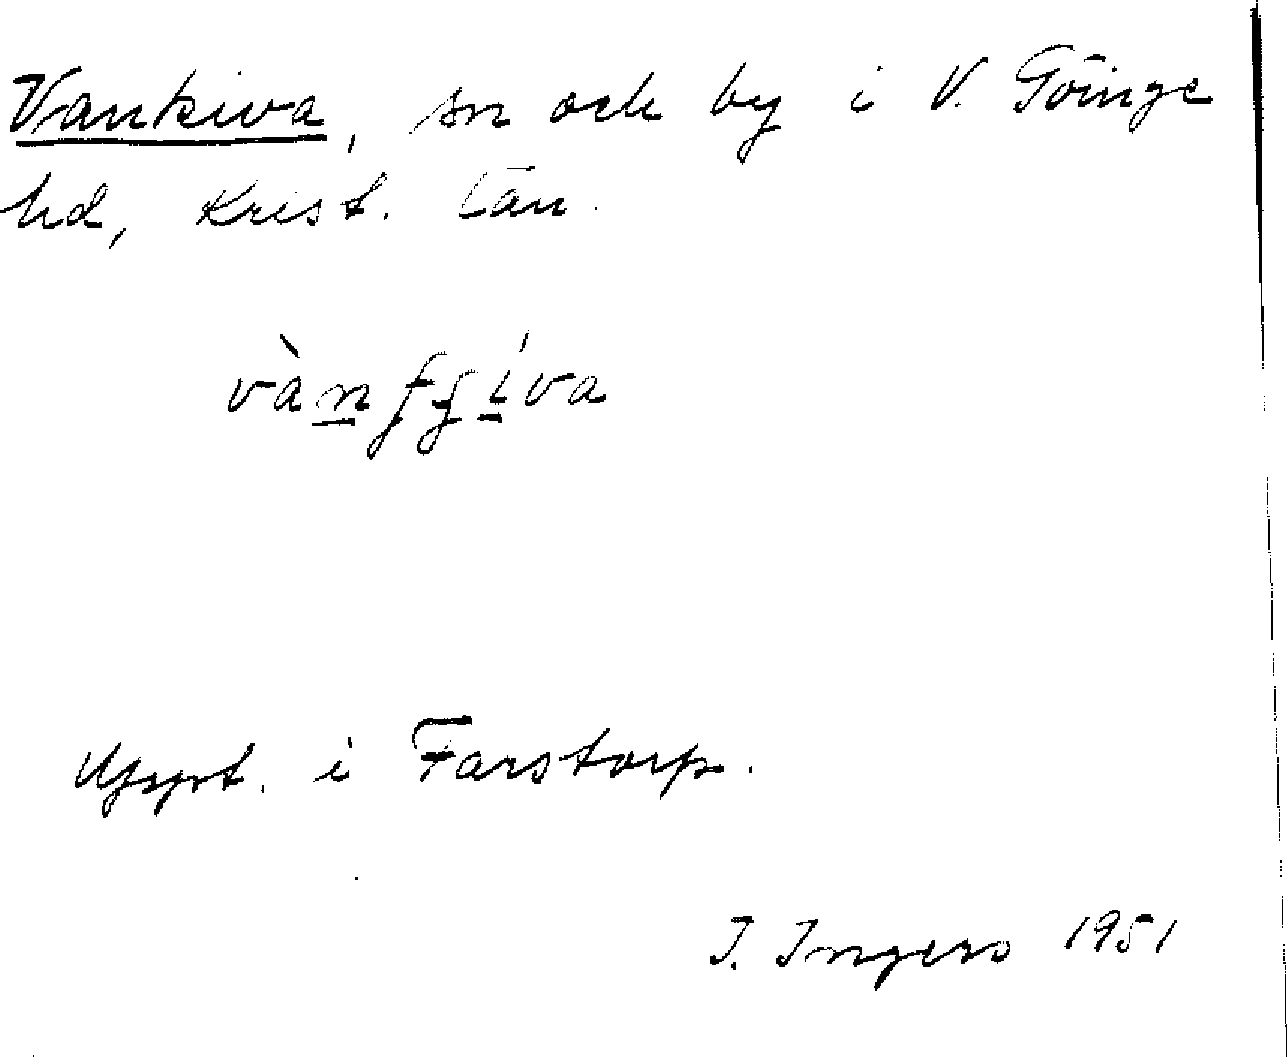 Vankiva, sn och by i V. Göinge
hd, Krist. län.
Uppt. i Farstorp.
I. Ingers 1951